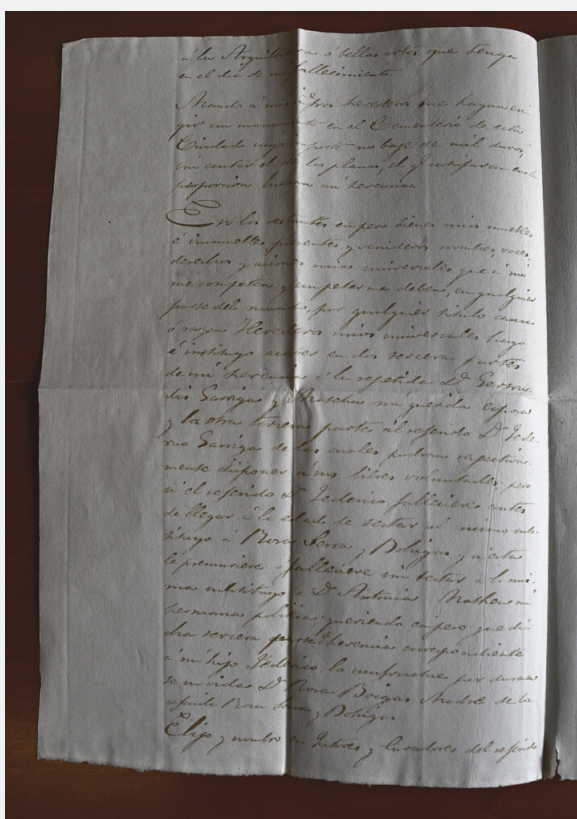 á la Arquitectura ó bellas artes que tenga
en el dia de mi fallecimiento.
Mando á mis herederos que hagan eri-
gir un monumento en el Cementerio de esta
Ciudad cuyo importe no baje de mil duros,
sin contar el de los planos, el q.
proporcion mi herencia.
En los restantes empero bienes mios muebles
é inmuebles presentes y venideros nombres, voces,
derechos y acciones mias universales que á mi
me competen y competer me deban, en qualquier
parte del mundo, por qualquier titulo causa
ó razon; Herederos mios universales hago
é instituyo en dos terceras partes
de mi herencia á la repetida D.ª Gertru-
dis Garriga y Matheu mi querida esposa
y la otra tercera parte al referido D.n Fede-
rico Garriga de las cuales podran respectiva-
mente disponer á sus libres voluntades, pero
si el referido D.n Federico falleciere antes
de llegar á la edad de testar al mismo subs-
tituyo á Rosa Serra y Bohigas y si esta
le premuriere ó falleciere sin testar á la mis-
ma substituyo á D.ª Antonia Matheu mi
hermana politica; queriendo empero que di-
cha tercera parte de herencia correspondiente
á mi hijo Federico la usufructue por durante
su vida D.ª Rosa Madre de la
repetida Rosa Serra y Bohigas
Elijo y nombro en Tutores y Curadores del referido